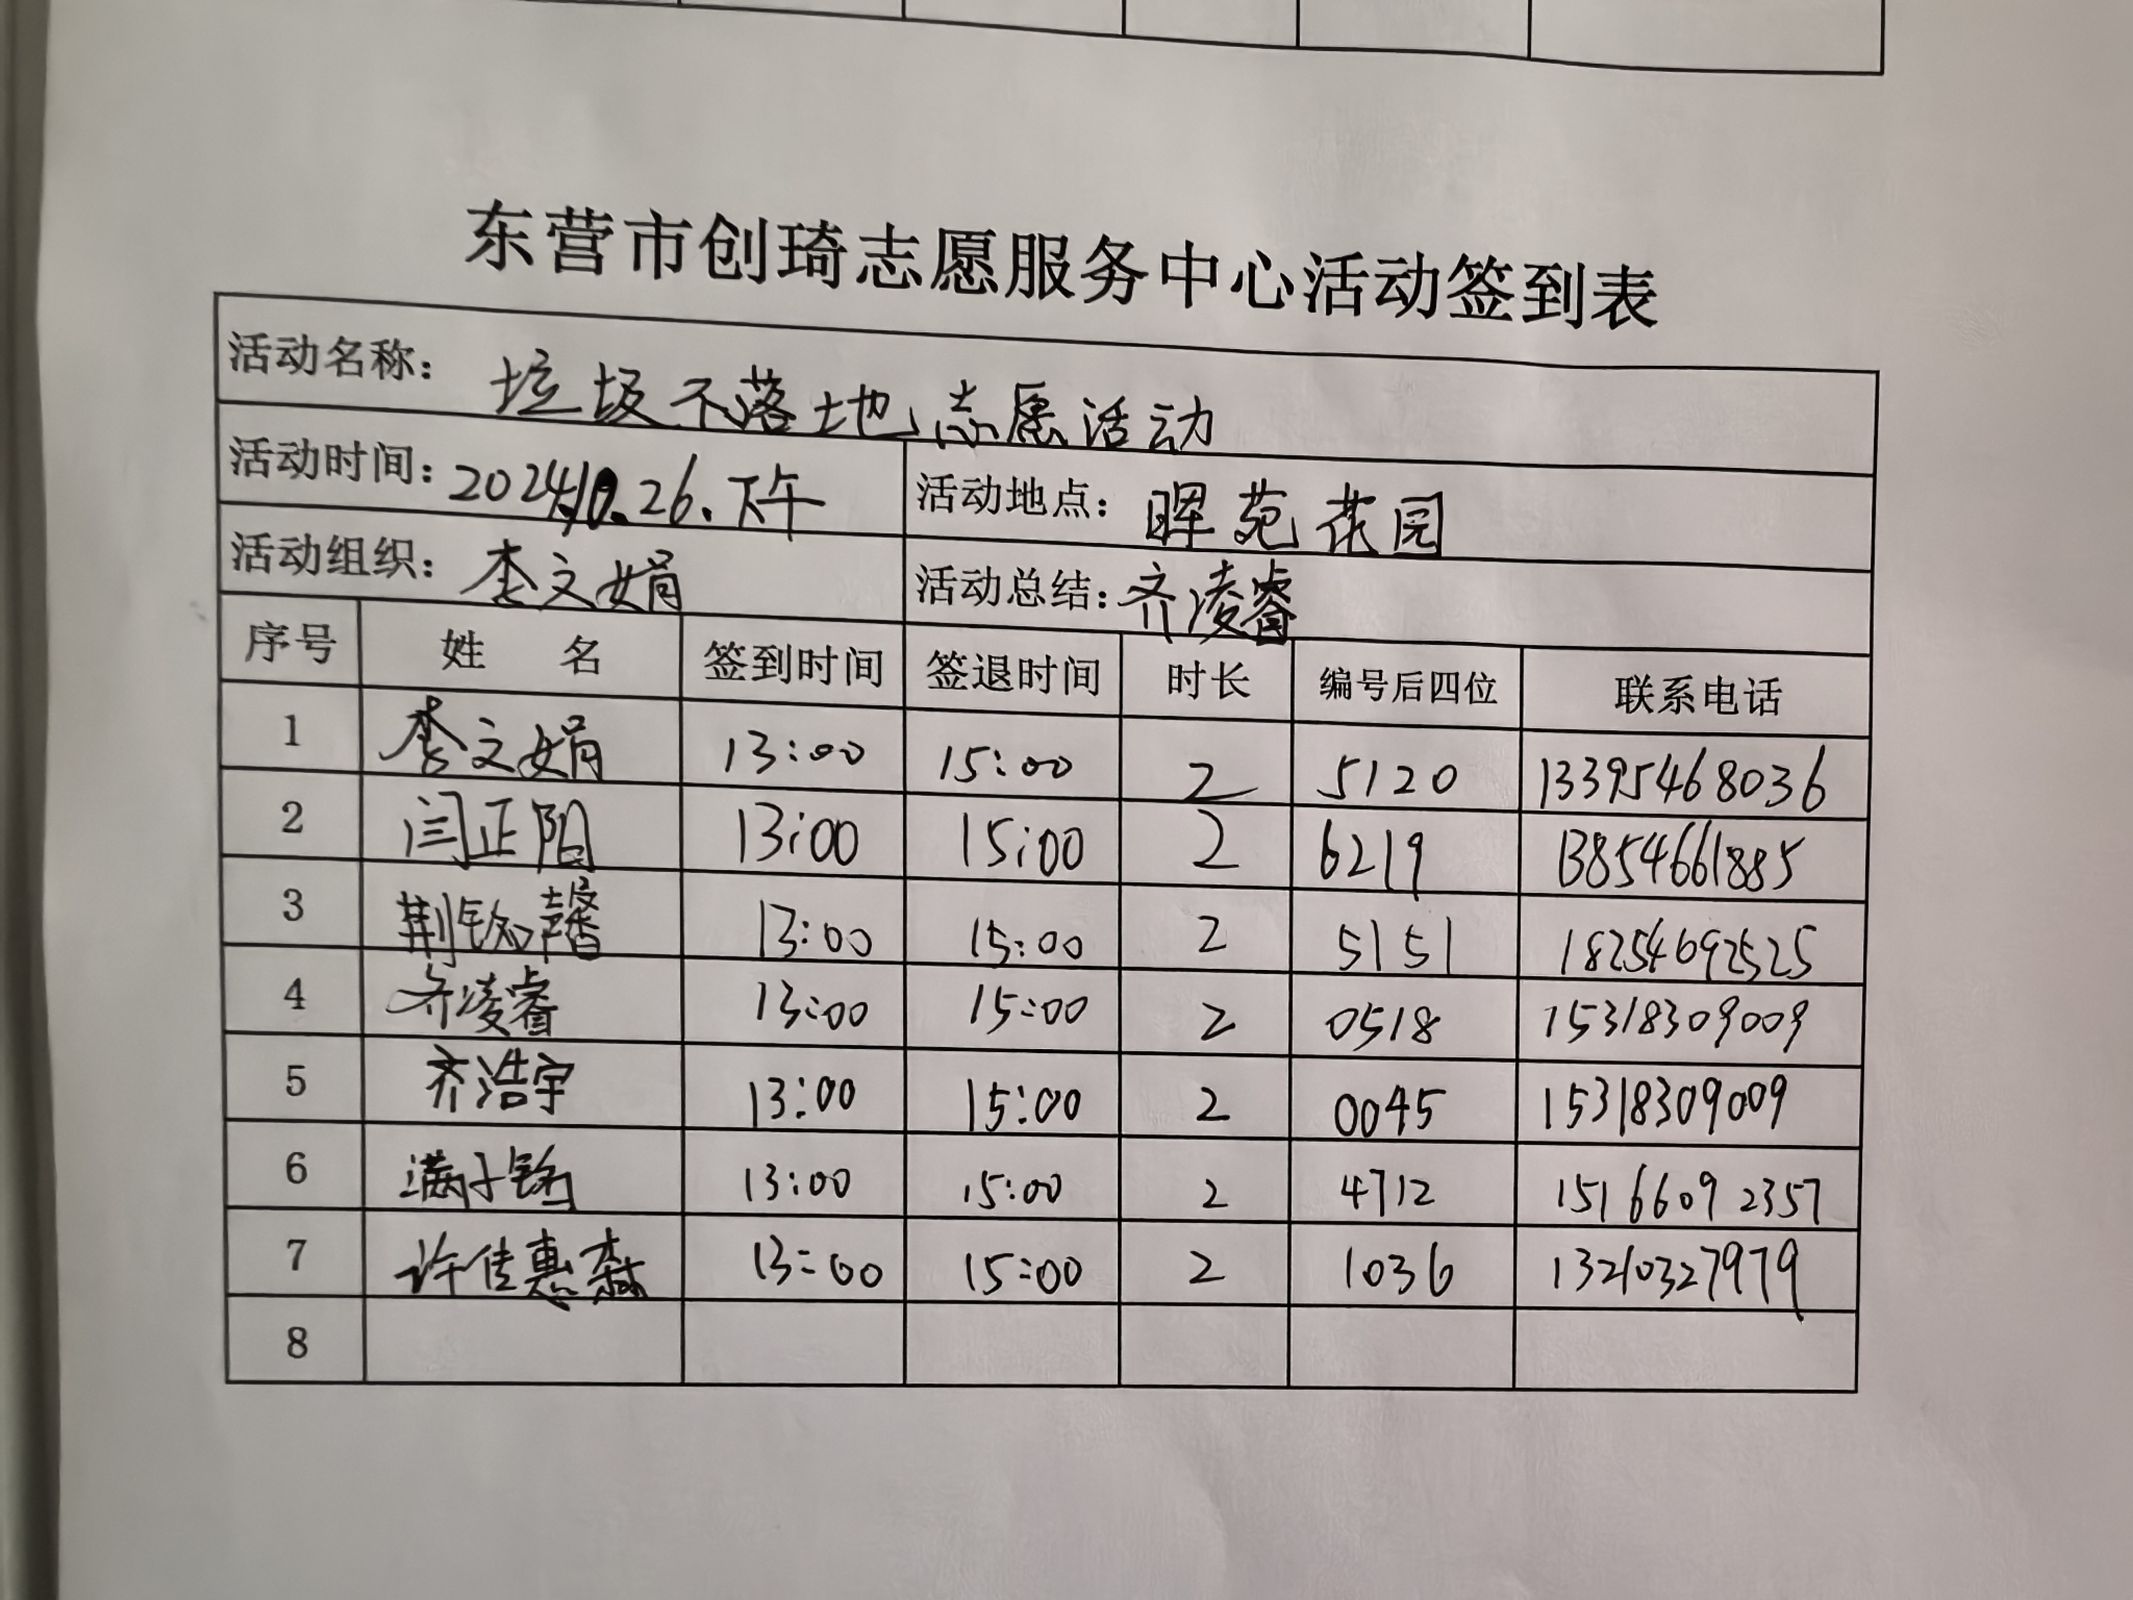 东营市创琦志愿服务中心活动签到表
活动名称： 垃圾不落地志愿活动
活动时间：2024.10.26.下午 活动地点： 晖苑花园
活动组织： 李文娟 活动总结：齐凌睿
序号 姓 名 签到时间 签退时间 时长 编号后四位 联系电话
1 李文娟 13:00 15:00 2 5120 13395468036
2 闫正阳 13:00 15:00 2 6219 13854661885
3 荆钦馨 13:00 15:00 2 5151 18254692525
4 齐凌睿 13:00 15:00 2 0518 15318309009
5 齐浩宇 13:00 15:00 2 0045 15318309009
6 满子 13:00 15:00 2 4712 15166092357
7 许佳惠森 13:00 15:00 2 1036 13210327979
8